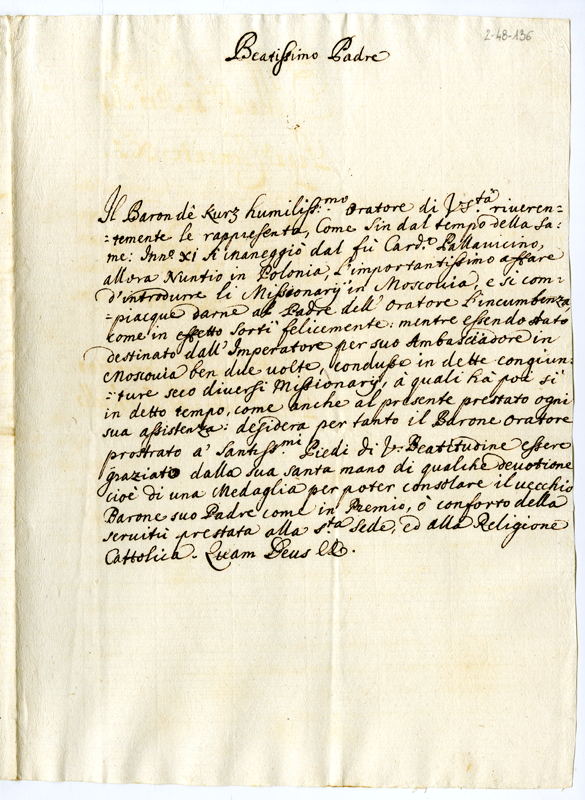 2-48-136
Beatissimo Padre
Il Baron dè Kurz humiliss.mo Oratore di V. S.tà riueren=
=temente le rappresenta, Come sin dal tempo della Sa:
me: Inn.o XI si maneggiò dal fù Card.e Pallauicino,
allora Nuntio in Polonia, l'importantissimo affare
d'introdurre li Missionarij in Moscouia, e se com
=piacque darne al Padre dell'Oratore l'incumbenza,
come in effetto sortì felicemente: mentre essendo stato
destinato dall'Imperatore per suo Ambasciadore in
Moscouia ben due volte, condusse in dette congiun=
=ture seco diuersi Missionarij, à quali hà poi sì
in detto tempo, come anche al presente prestato ogni
sua assistenza: desidera per tanto il Barone Oratore
prostrato a' Santiss.mi Piedi di V. Beatitudine essere
graziato dalla sua santa mano di qualche deuotione
cioè di una Medaglia per poter consolare il uecchio
Barone suo Padre come in Premio, ò conforto della
seruitù prestata alla S.ta Sede, ed alla Religione
Cattolica. Quam Deus